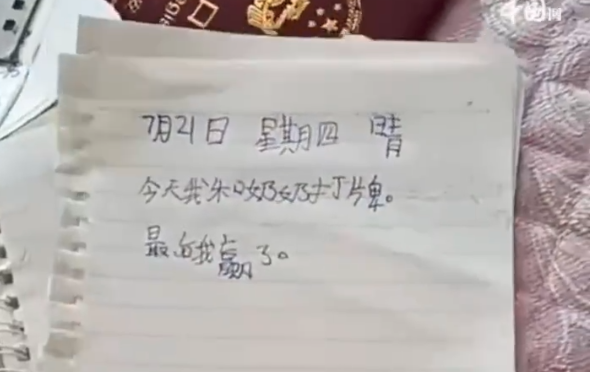 中国网
7月21日 星期四 晴
今天我和奶奶打牌。
最后我赢了。